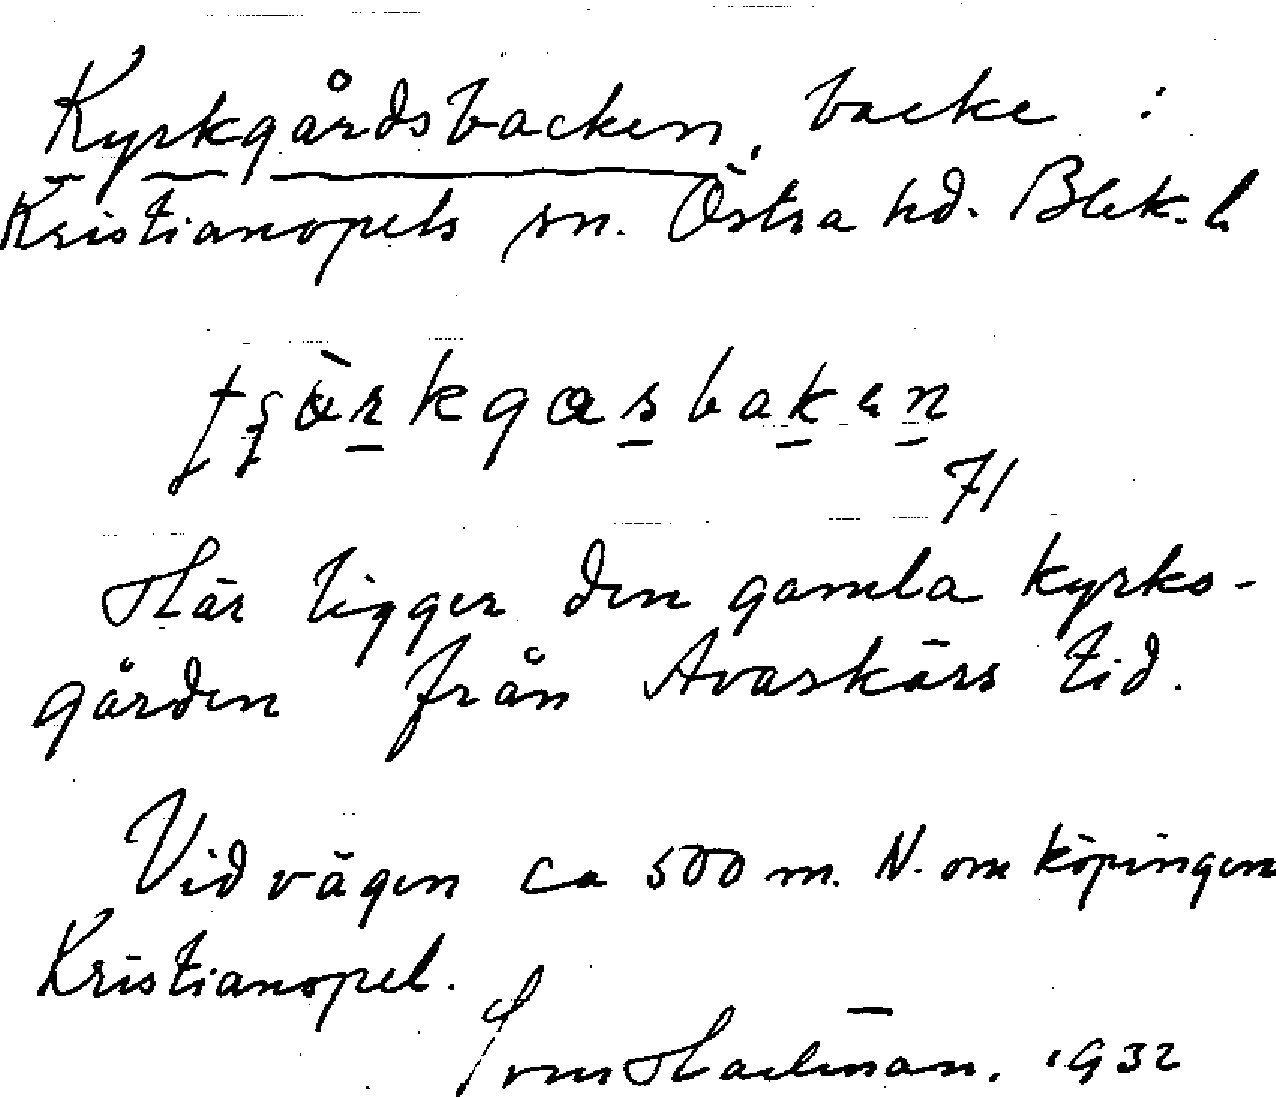 Kyrkgårdsbacken, backe i
Kristianopels sn. Östra hd. Blek. l.
71
Här ligger den gamla kyrko-
gården från Avaskärs tid.
Vid vägen ca 500 m. N. om köpingen
Kristianopel.
1932